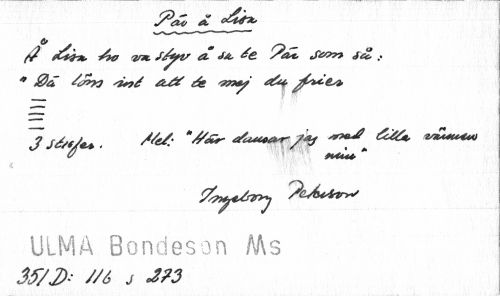 Pär å Lisa
Å Lisa ho va styv å sa te Pär som så:
"Dä löns int att te mej du frier
3 strofer. Mel: "Här dansar jag med lilla vännen
min"
Ingeborg Peterson
ULMA Bondeson Ms
351 D: 116 s 273